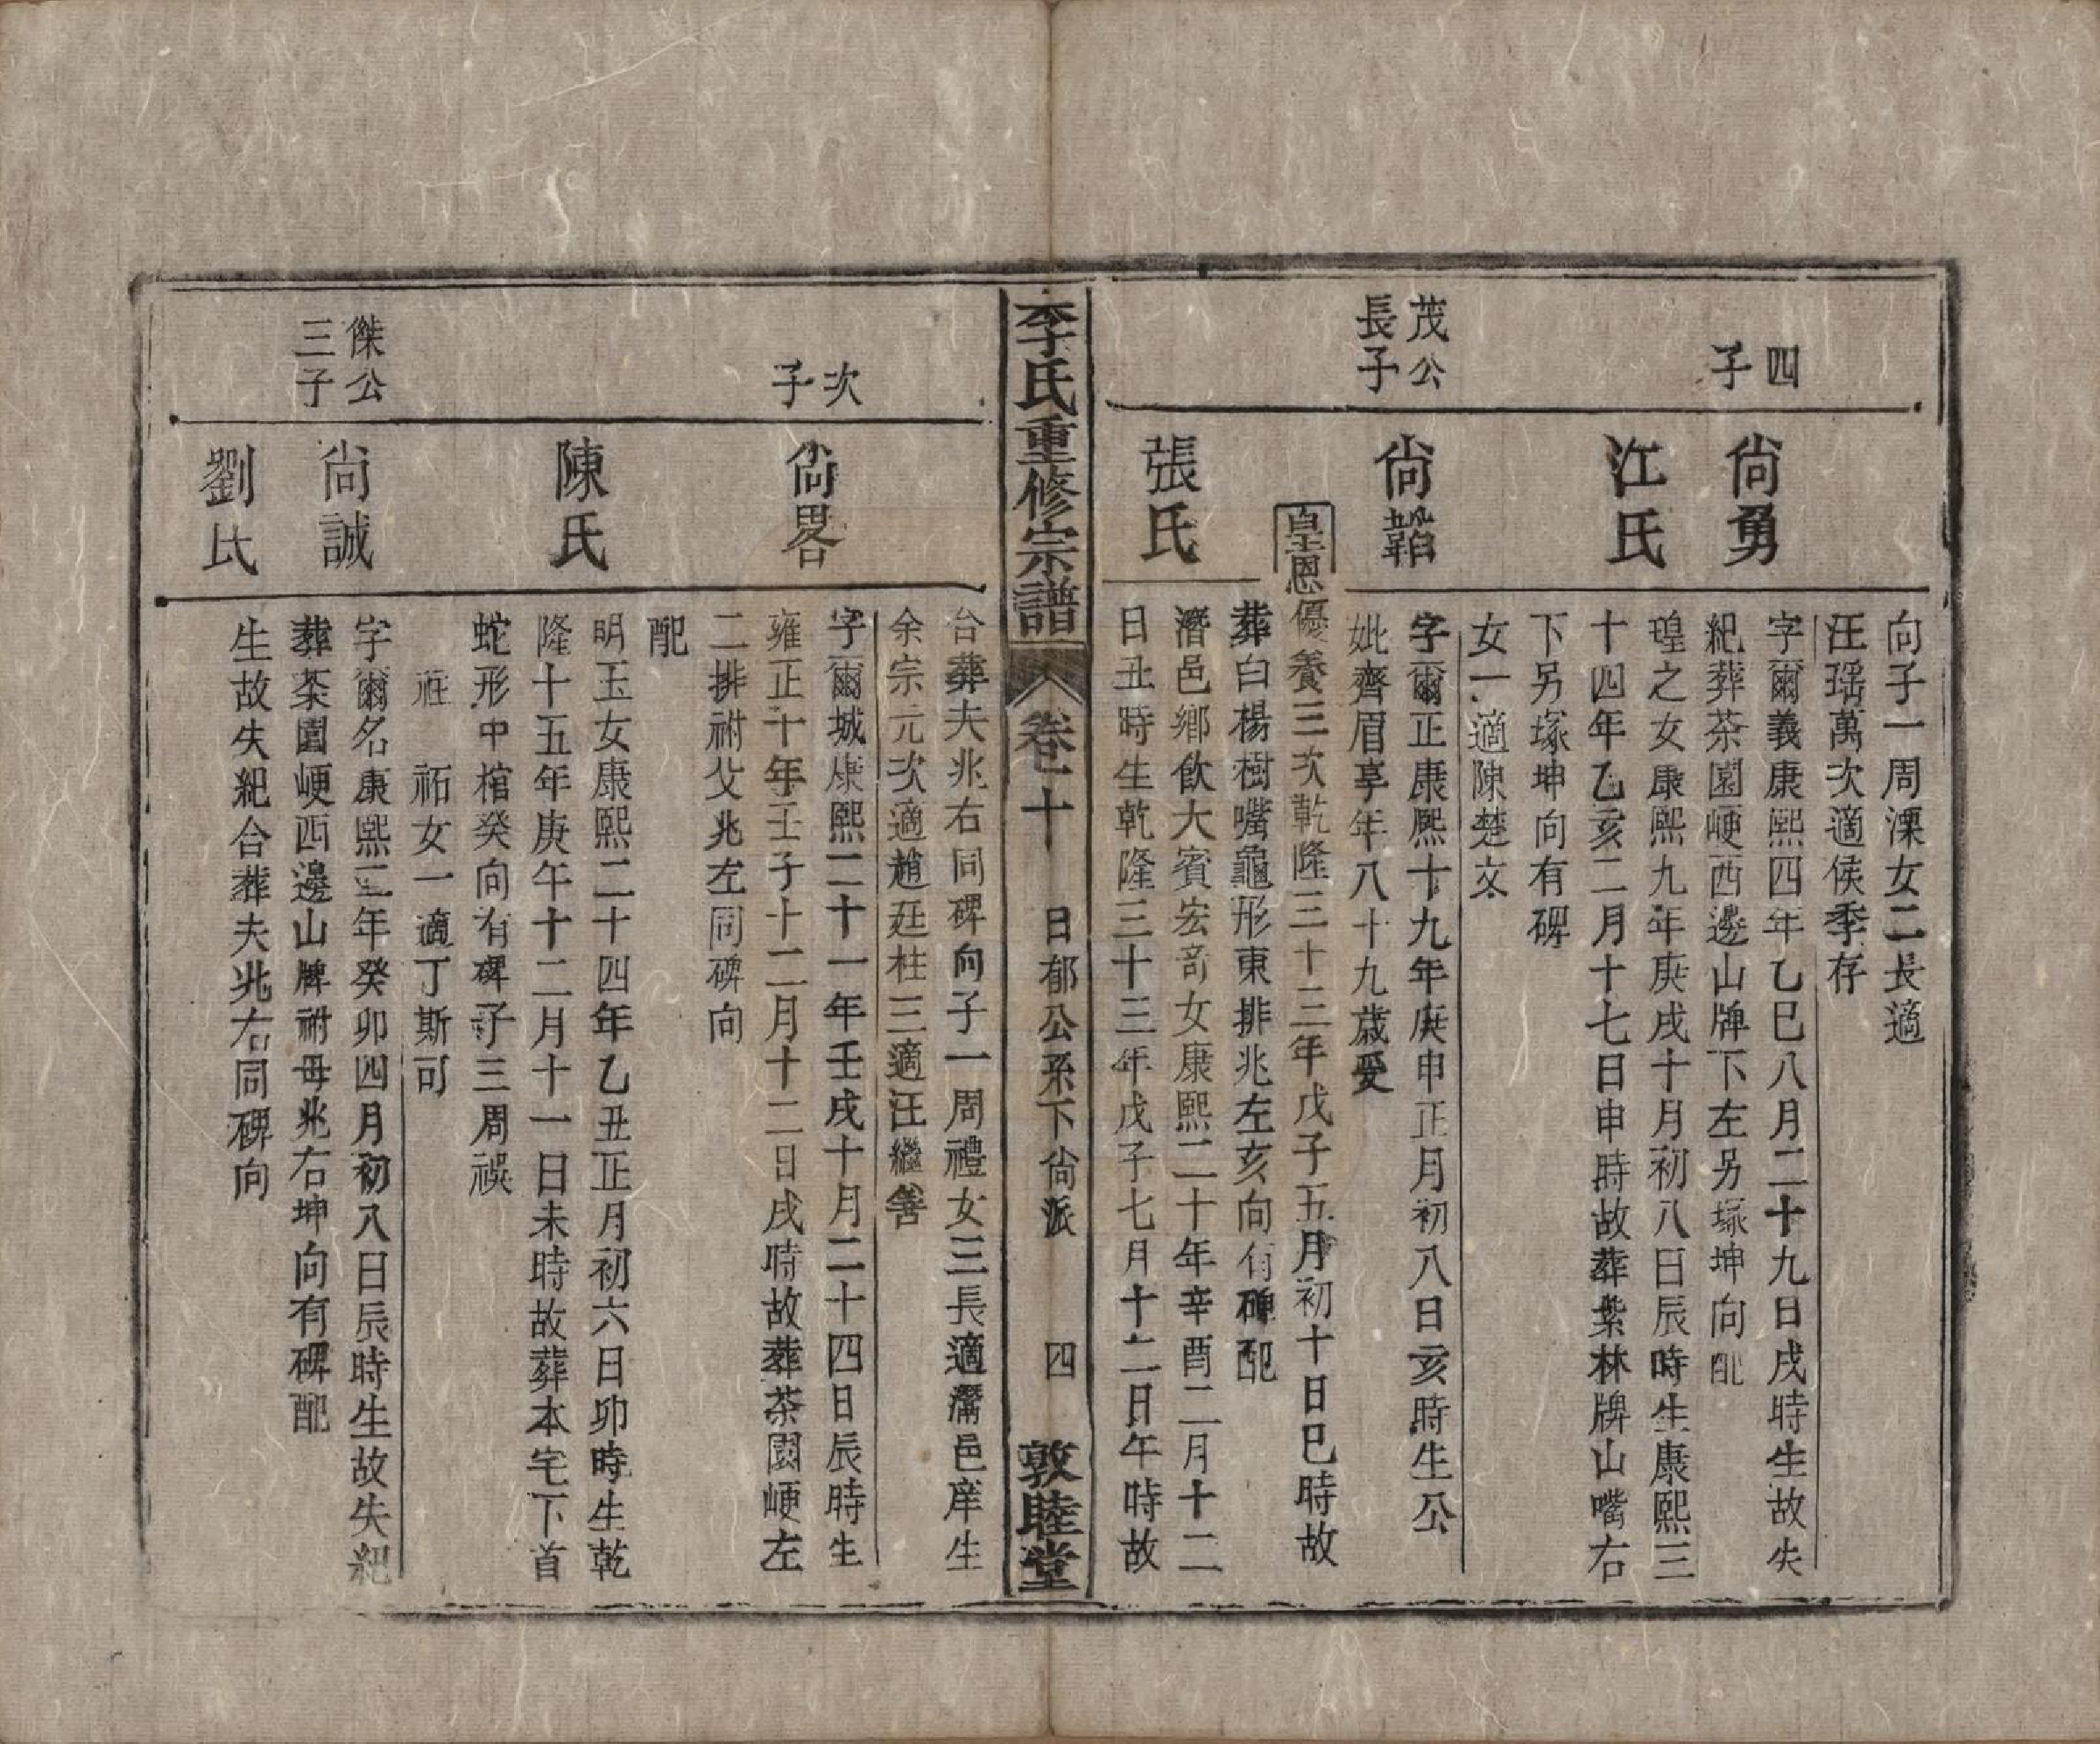 向子一周溧女二長適
汪瑤萬次適侯季存
四
子
尙勇
字爾義康熙四年乙巳八月二十九日戌時生故失
紀葬茶園㟰西邊山牌下左另塚坤向配
江氏
瑝之女康熙九年庚戌十月初八日辰時生康熙三
十四年乙亥二月十七日申時故葬紫林牌山嘴右
下另塚坤向有碑
女一適陳楚文
茂公
長子
尙韜
字爾正康熙十九年庚申正月初八日亥時生公
妣齊眉享年八十九歲受
皇恩優養三次乾隆三十三年戊子五月初十日巳時故
葬白楊樹嘴龜形東排兆左亥向有碑配
張氏
潛邑鄉飲大賓宏竒女康熙二十年辛酉二月十二
日丑時生乾隆三十三年戊子七月十二日午時故
李氏重修宗譜
卷十
日郁公系下尙派
四
敦睦堂
合葬夫兆右同碑向子一周禮女三長適潛邑庠生
余宗元次適趙廷柱三適汪繼善
次
子
尙畧
字爾城康熙二十一年壬戌十月二十四日辰時生
雍正十年壬子十二月十二日戌時故葬茶園㟰左
二排祔父兆左同碑向
配
陳氏
明玉女康熙二十四年乙丑正月初六日卯時生乾
隆十五年庚午十二月十一日未時故葬本宅下首
蛇形中棺癸向有碑子三周祦
祏女一適丁斯可
傑公
三子
尙誠
字爾名康熙二年癸卯四月初八日辰時生故失紀
葬茶園㟰西邊山牌祔母兆右坤向有碑配
劉氏
生故失紀合葬夫兆右同碑向